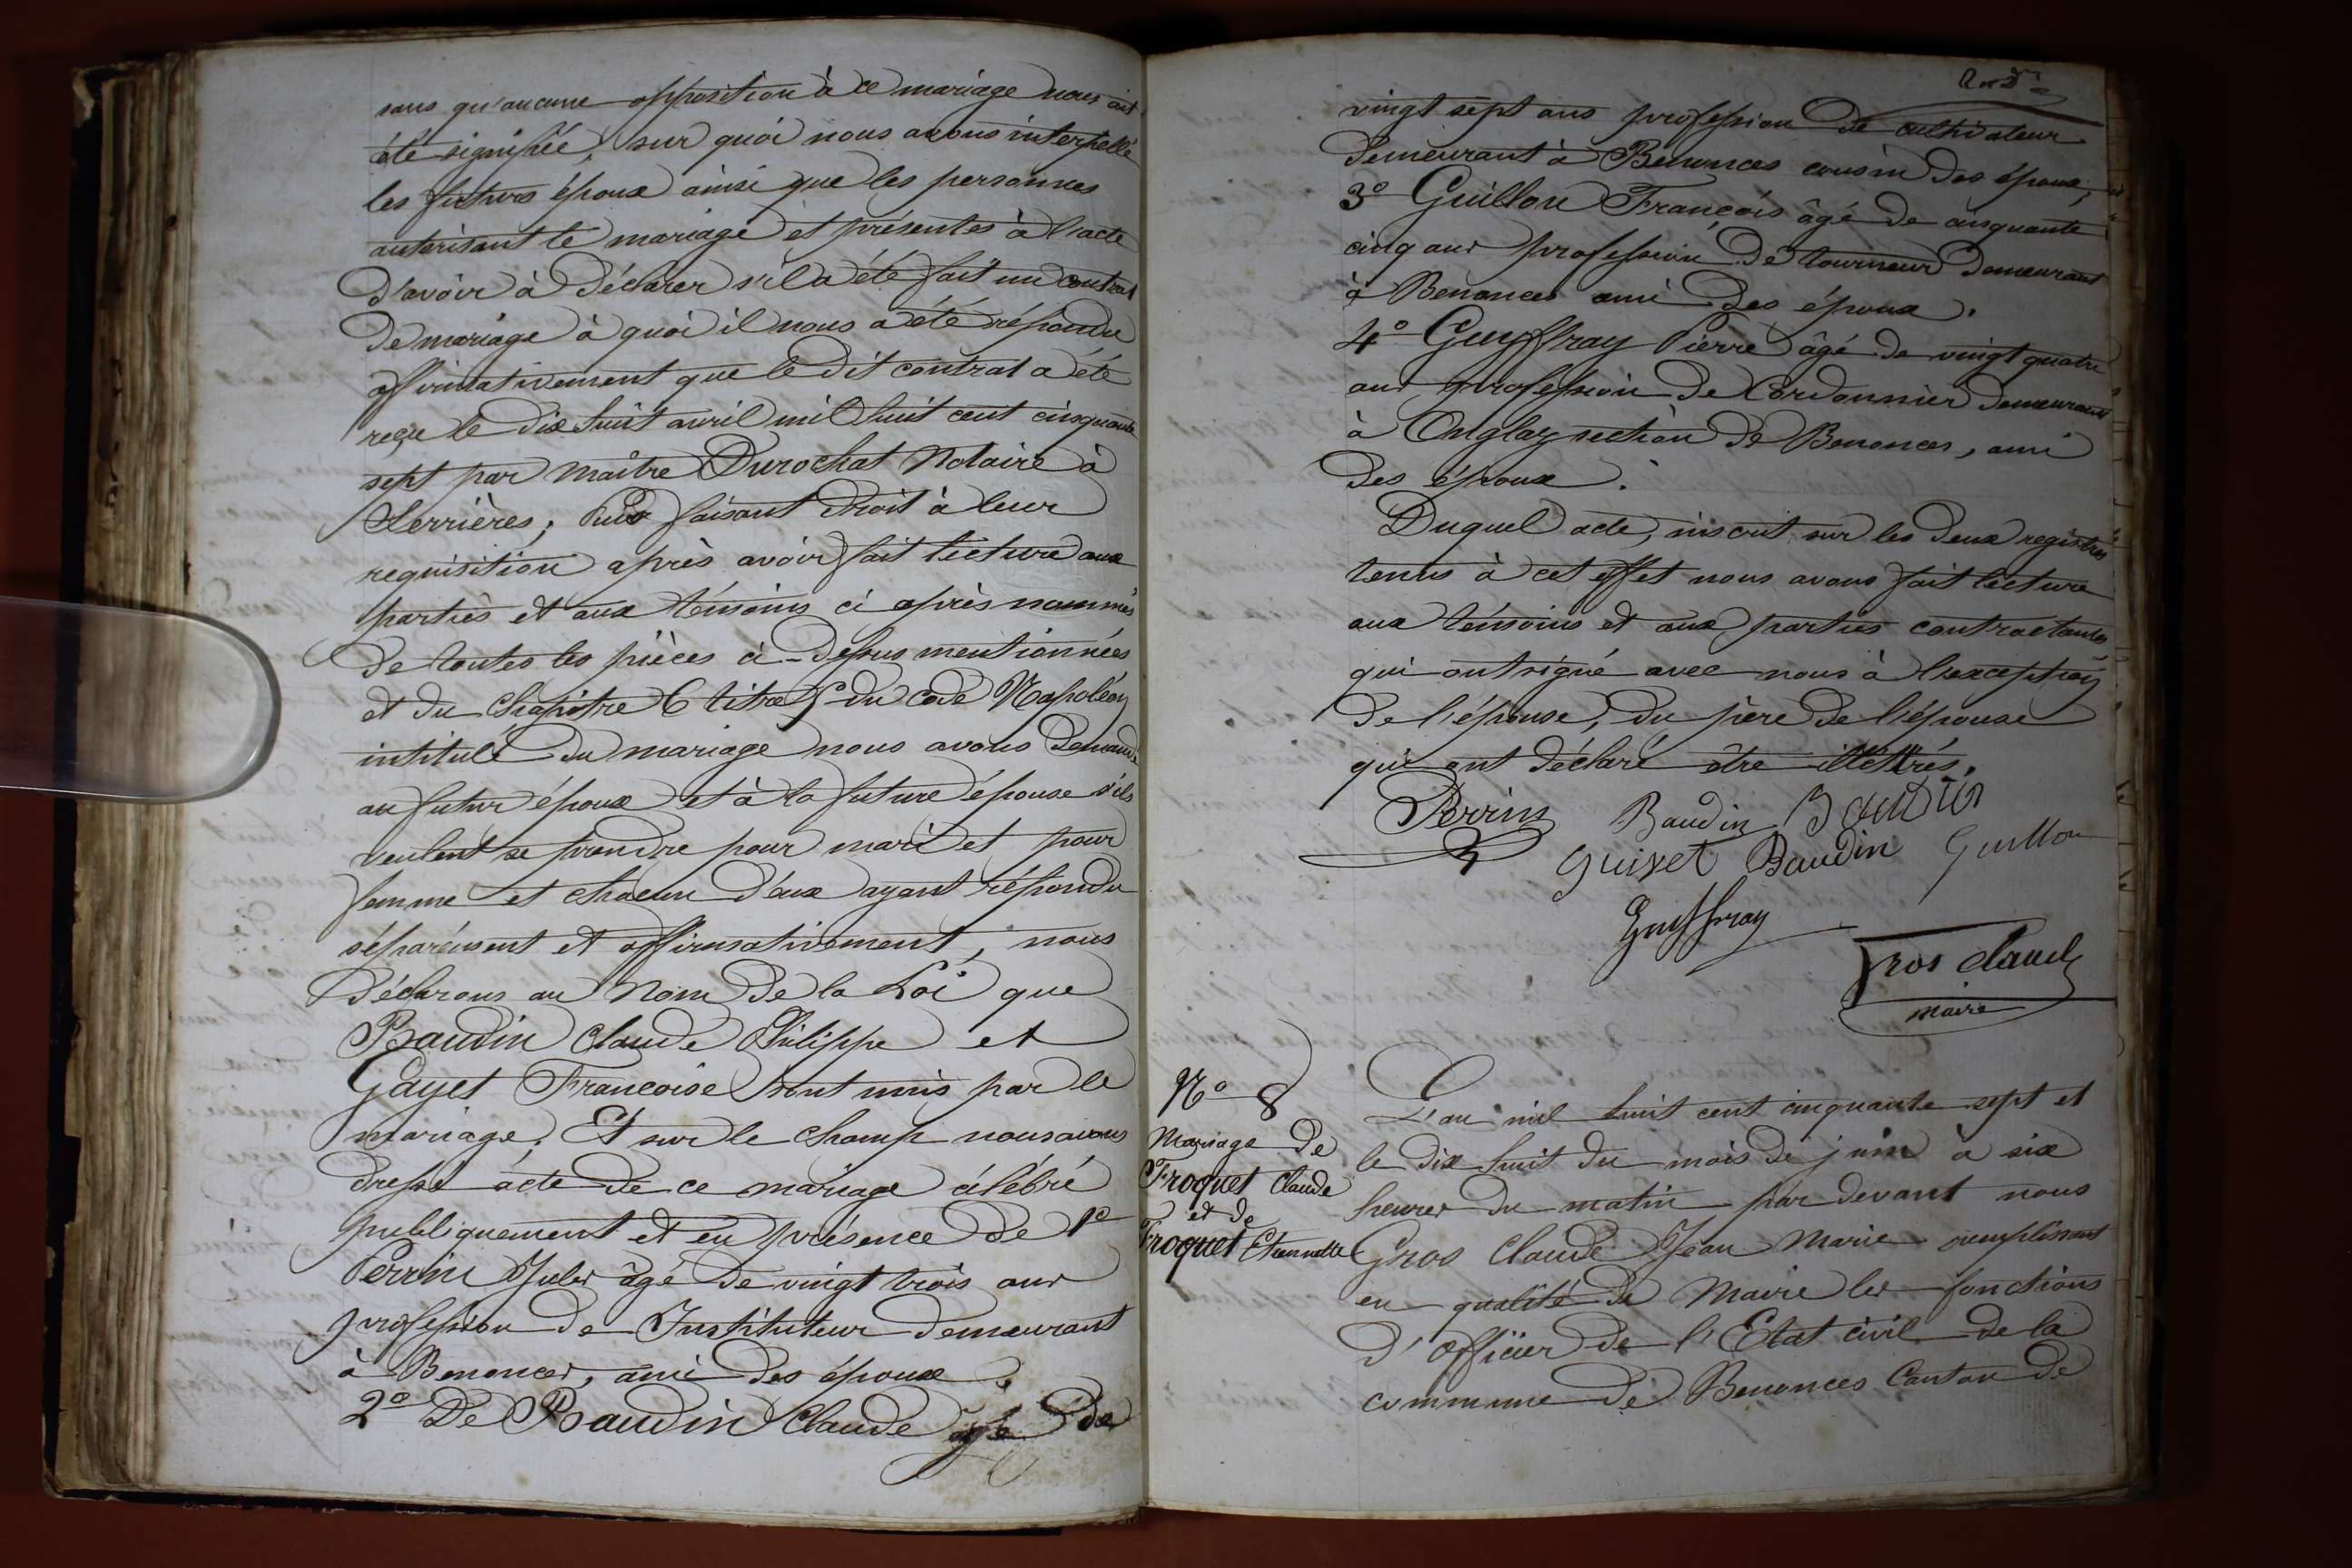 sans qu'aucune opposition à ce mariage nous ait
été signifiée, sur quoi nous avons interpellé
les futurs époux ainsi que les personnes
autorisant le mariage et présentes à l'acte
d'avoir à déclarer s'il a été fait un contrat
de mariage à quoi il nous a été répondu
affirmativement que le dit contrat a été
reçu le dix huit avril mil huit cent cinquante
sept par Maître Durochat Notaire à
Serrières; Puis faisant droit à leur
requisition après avoir fait lecture aux
parties et aux témoins ci après nommés
de toutes les pièces ci-dessus mentionnées
et du chapitre 6 titre 5 du code Napoléon
intitulé du mariage nous avons demandé
au futur époux et à la future épouse s'ils
veulent se prendre pour mari et pour
femme et chacun d'eux ayant répondu
séparément et affirmativement, nous
déclarons au Nom de la Loi que
Baudin Claude Philippe et
Gayet Françoise sont unis par le
mariage. Et sur le champ nous avons
dressé acte de ce mariage célébré
publiquement et en présence de 1º
Perrin Jules âgé de vingt trois ans
profession de Instituteur demeurant
à Benonces, ami des époux.
2º De Baudin Claude âgé de
vingt sept ans profession de cultivateur
demeurant à Benonces cousin des époux,
3º Guillon François âgé de cinquante
cinq ans profession de tourneur demeurant
à Benonces ami des époux.
4º Guyffray Pierre âgé de vingt quatre
ans profession de Cordonnier demeurant
à Onglaz section de Benonces, ami
des époux.
Duquel acte, inscrit sur les deux registres
tenus à cet effet nous avons fait lecture
aux témoins et aux parties contractantes
qui ont signé avec nous à l'exception
de l'épouse, du père de l'épouse
qui ont déclaré être illettrés.
Perrin Baudin Baudin
Guixet Baudin Guillon
Guyffray
Gros Claude
maire
Nº 8
Mariage de
Froquet Claude
et de
Froquet Etiennette
L'an mil huit cent cinquante sept et
le dix huit du mois de juin à six
heures du matin par devant nous
Gros Claude Jean Marie remplissant
en qualité de Maire les fonctions
d'Officier de l'Etat civil de la
commune de Benonces Canton de